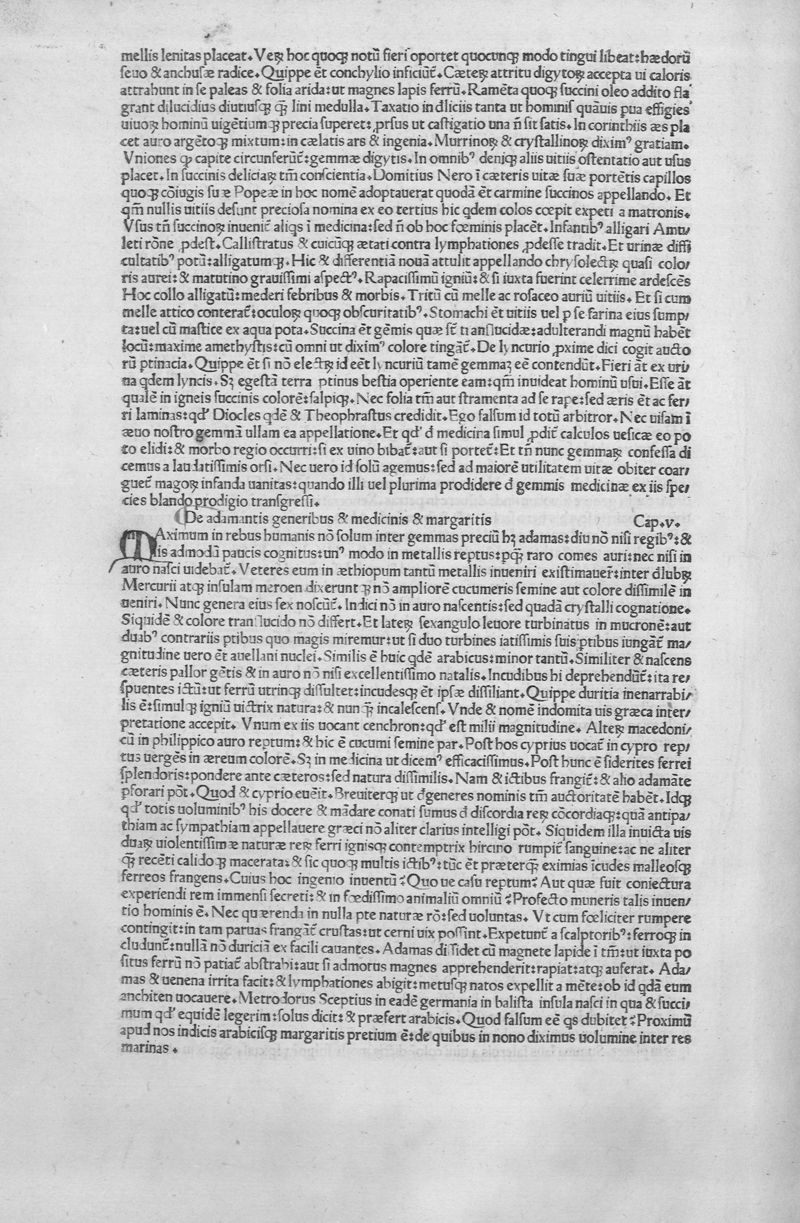 mellis lenitas placeat. Veꝝ hoc quoqꝫ notũ fieri oportet quocunqꝫ modo tingui libeat: hædorũ
seuo & anchusæ radice. Quippe ẽt conchylio inficiũt̃. Cæteꝝ attritu digytoꝝ accepta ui caloris
attrahunt in se paleas & folia arida: ut magnes lapis ferrũ. Ramẽta quoqꝫ succini oleo addito fla
grant dilucidius diutiusqꝫ qꝫ lini medulla. Taxatio in dliciis tanta ut hominis quãuis pua effigies
uiuoꝝ hominũ uigẽtiumqꝫ precia superet: ꝓrsus ut castigatio una ñ sit satis. In corinthiis æs pla
cet auro argẽtoqꝫ mixtum: in cælatis ars & ingenia. Murrinoꝝ & crystallinoꝝ diximꝰ gratiam.
Vniones qꝫ capite circunferũt̃: gemmæ digytis. In omnibꝰ deniqꝫ aliis uitiis ostentatio aut usus
placet. In succinis deliciaꝝ tm̃ conscientia. Domitius Nero ĩ cæteris uitæ suæ portẽtis capillos
quoqꝫ cõiugis suæ Popeæ in hoc nomẽ adoptauerat quodã ẽt carmine succinos appellando. Et
qm̃ nullis uitiis desunt preciosa nomina ex eo tertius hic qdem colos cœpit expeti a matronis.
Vsus tñ succinoꝝ inuenit̃ aliqs ĩ medicina: sed ñ ob hoc fœminis placẽt. Infantibꝰ alligari Amu
leti rõne ꝓdest. Callistratus & cuicũqꝫ ætati contra lymphationes ꝓdesse tradit. Et urinæ diffi
cultatibꝰ potũ: alligatumqꝫ. Hic & differentiã nouã attulit appellando chrysolectꝝ quasi colo
ris aurei: & matutino grauissimi aspectꝰ. Rapacissimũ igniũ: & si iuxta fuerint celerrime ardescẽs
Hoc collo alligatũ: mederi febribus & morbis. Tritũ cũ melle ac rosaceo auriũ uitiis. Et si cum
melle attico conterat̃: oculoꝝ quoqꝫ obscuritatibꝰ. Stomachi ẽt uitiis uel p se farina eius sump
ta: uel cũ mastice ex aqua pota. Succina ẽt gẽmis quæ st̃ translucidæ: adulterandi magnũ habẽt
locũ: maxime amethystis: cũ omni ut diximꝰ colore tingãt̃. De lyncurio ꝓxime dici cogit aucto
rũ ptinacia. Quippe ẽt si nõ electꝝ id eẽt lyncuriũ tamẽ gemmaꝫ eẽ contendũt. Fieri ãt ex uri
na qdem lyncis. Sꝫ egestã terra ptinus bestia operiente eam: qm̃ inuideat hominũ usui. Esse ãt
qualẽ in igneis succinis colorẽ: salpiqꝫ. Nec folia tm̃ aut stramenta ad se rape: sed æris ẽt ac fer
ri laminas: qdꝰ Diocles qdẽ & Theophrastus credidit. Ego falsum id totũ arbitror. Nec uisam ĩ
æuo nostro gemmã ullam ea appellatione. Et qdꝰ đ medicina simul ꝓdit̃ calculos uesicæ eo po
to elidi: & morbo regio occurri: si ex uino bibat̃: aut si portet̃: Et tñ nunc gemmaꝝ confessa di
cemus a laudatissimis orsi. Nec uero id solũ agemus: sed ad maiorẽ utilitatem uitæ obiter coar
guet̃ magoꝝ infanda uanitas: quando illi uel plurima prodidere đ gemmis medicinæ ex iis spe
cies blando prodigio transgressi.
De adamantis generibus & medicinis & margaritis Cap. v.
MAximum in rebus humanis nõ solum inter gemmas preciũ hꝫ adamas: diu nõ nisi regibꝰ: &
iis admodã paucis cognitus: unꝰ modo in metallis reptus: pqꝫ raro comes auri: nec nisi in
auro nasci uidebat̃. Veteres eum in æthiopum tantũ metallis inueniri existimauer̃: inter đlubꝝ
Mercurii atqꝫ insulam meroen dixerunt qꝫ nõ ampliorẽ cucumeris semine aut colore dissimilẽ in
ueniri. Nunc genera eius sex noscũt̃. Indici nõ in auro nascentis: sed quadã crystalli cognatione.
Siquidẽ & colore translucido nõ differt. Et lateꝝ sexangulo leuore turbinatus in mucronẽ: aut
duabꝰ contrariis ptibus quo magis miremur: ut si duo turbines latissimis suis ptibus iungãt̃ ma
gnitudine uero ẽt auellani nuclei. Similis ẽ huic qdẽ arabicus: minor tantũ. Similiter & nascens
cæteris pallor gẽtis & in auro nõ nisi excellentissimo natalis. Incudibus hi deprehendũt̃: ita re
spuentes ictũ: ut ferrũ utrinqꝫ dissultet: incudesqꝫ ẽt ipsæ dissiliant. Quippe duritia inenarrabi
lis ẽ: simulqꝫ igniũ uictrix natura: & nunqꝫ incalescens. Vnde & nomẽ indomita uis græca inter
pretatione accepit. Vnum ex iis uocant cenchron: qdꝰ est milii magnitudine. Alteꝝ macedoni
cũ in philippico auro reptum: & hic ẽ cucumi semine par. Post hos cyprius uocat̃ in cypro rep
tus uergẽs in æreum colorẽ. Sꝫ in medicina ut dicemꝰ efficacissimus. Post hunc ẽ siderites ferrei
splendoris: pondere ante cæteros: sed natura dissimilis. Nam & ictibus frangit̃: & alio adamãte
pforari põt. Quod & cyprio euẽit. Breuiterqꝫ ut đgeneres nominis tm̃ auctoritatẽ habẽt. Idqꝫ
qdꝰ totis uoluminibꝰ his docere & mãdare conati sumus đ discordia reꝝ cõcordiaqꝫ: quã antipa
thiam ac sympathiam appellauere græci nõ aliter clarius intelligi põt. Siquidem illa inuicta uis
duaꝝ uiolentissimæ naturæ reꝝ ferri ignisqꝫ contemptrix hircino rumpit̃ sanguine: ac ne aliter
qꝫ recẽti calidoqꝫ macerata: & sic quoqꝫ multis ictibꝰ: tũc ẽt præterqꝫ eximias ĩcudes malleosqꝫ
ferreos frangens. Cuius hoc ingenio inuentũ? Quo ue casu reptum? Aut quæ fuit coniectura
experiendi rem immensi secreti: & in fœdissimo animaliũ omniũ? Profecto muneris talis inuen
tio hominis ẽ. Nec quærenda in nulla pte naturæ rõ: sed uoluntas. Vt cum fœliciter rumpere
contingit: in tam paruas frangãt̃ crustas: ut cerni uix possint. Expetunt̃ a scalptoribꝰ: ferroqꝫ in
cludunt̃: nullã nõ duriciã ex facili cauantes. Adamas dissidet cũ magnete lapide ĩ tm̃: ut iuxta po
situs ferrũ nõ patiat̃ abstrahi: aut si admotus magnes apprehenderit: rapiat: atqꝫ auferat. Ada
mas & uenena irrita facit: & lymphationes abigit: metusqꝫ natos expellit a mẽte: ob id qdã eum
anchiten uocauere. Metrodorus Sceptius in eadẽ germania in balista insula nasci in qua & succi
mum qdꝰ equidẽ legerim: solus dicit: & præfert arabicis. Quod falsum eẽ qs dubitet? Proximũ
apud nos indicis arabicisqꝫ margaritis pretium ẽ: de quibus in nono diximus uolumine inter res
marinas.